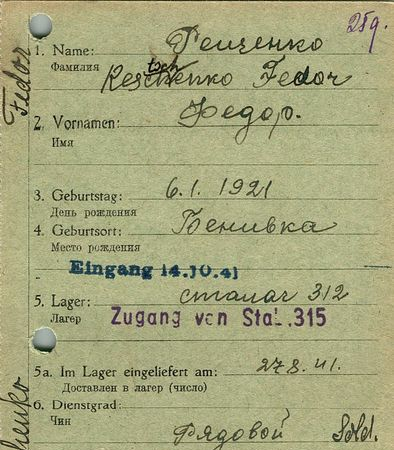 25g.
1. Name: Решченко
Фамилия tsch
Reschenko Fedor
2. Vornamen: Федор.
Имя
3. Geburtstag: 6.1.1921
День рождения
4. Geburtsort: Бенивка
Место рождения
Eingang 14.10.41
5. Lager: сталаг 312
Лагер Zugang von Stal.315
5a. Im Lager eingeliefert am: 27.8.41.
Доставлен в лагер (число)
6. Dienstgrad:
Чин Рядовой Sold.
Fedor
henko